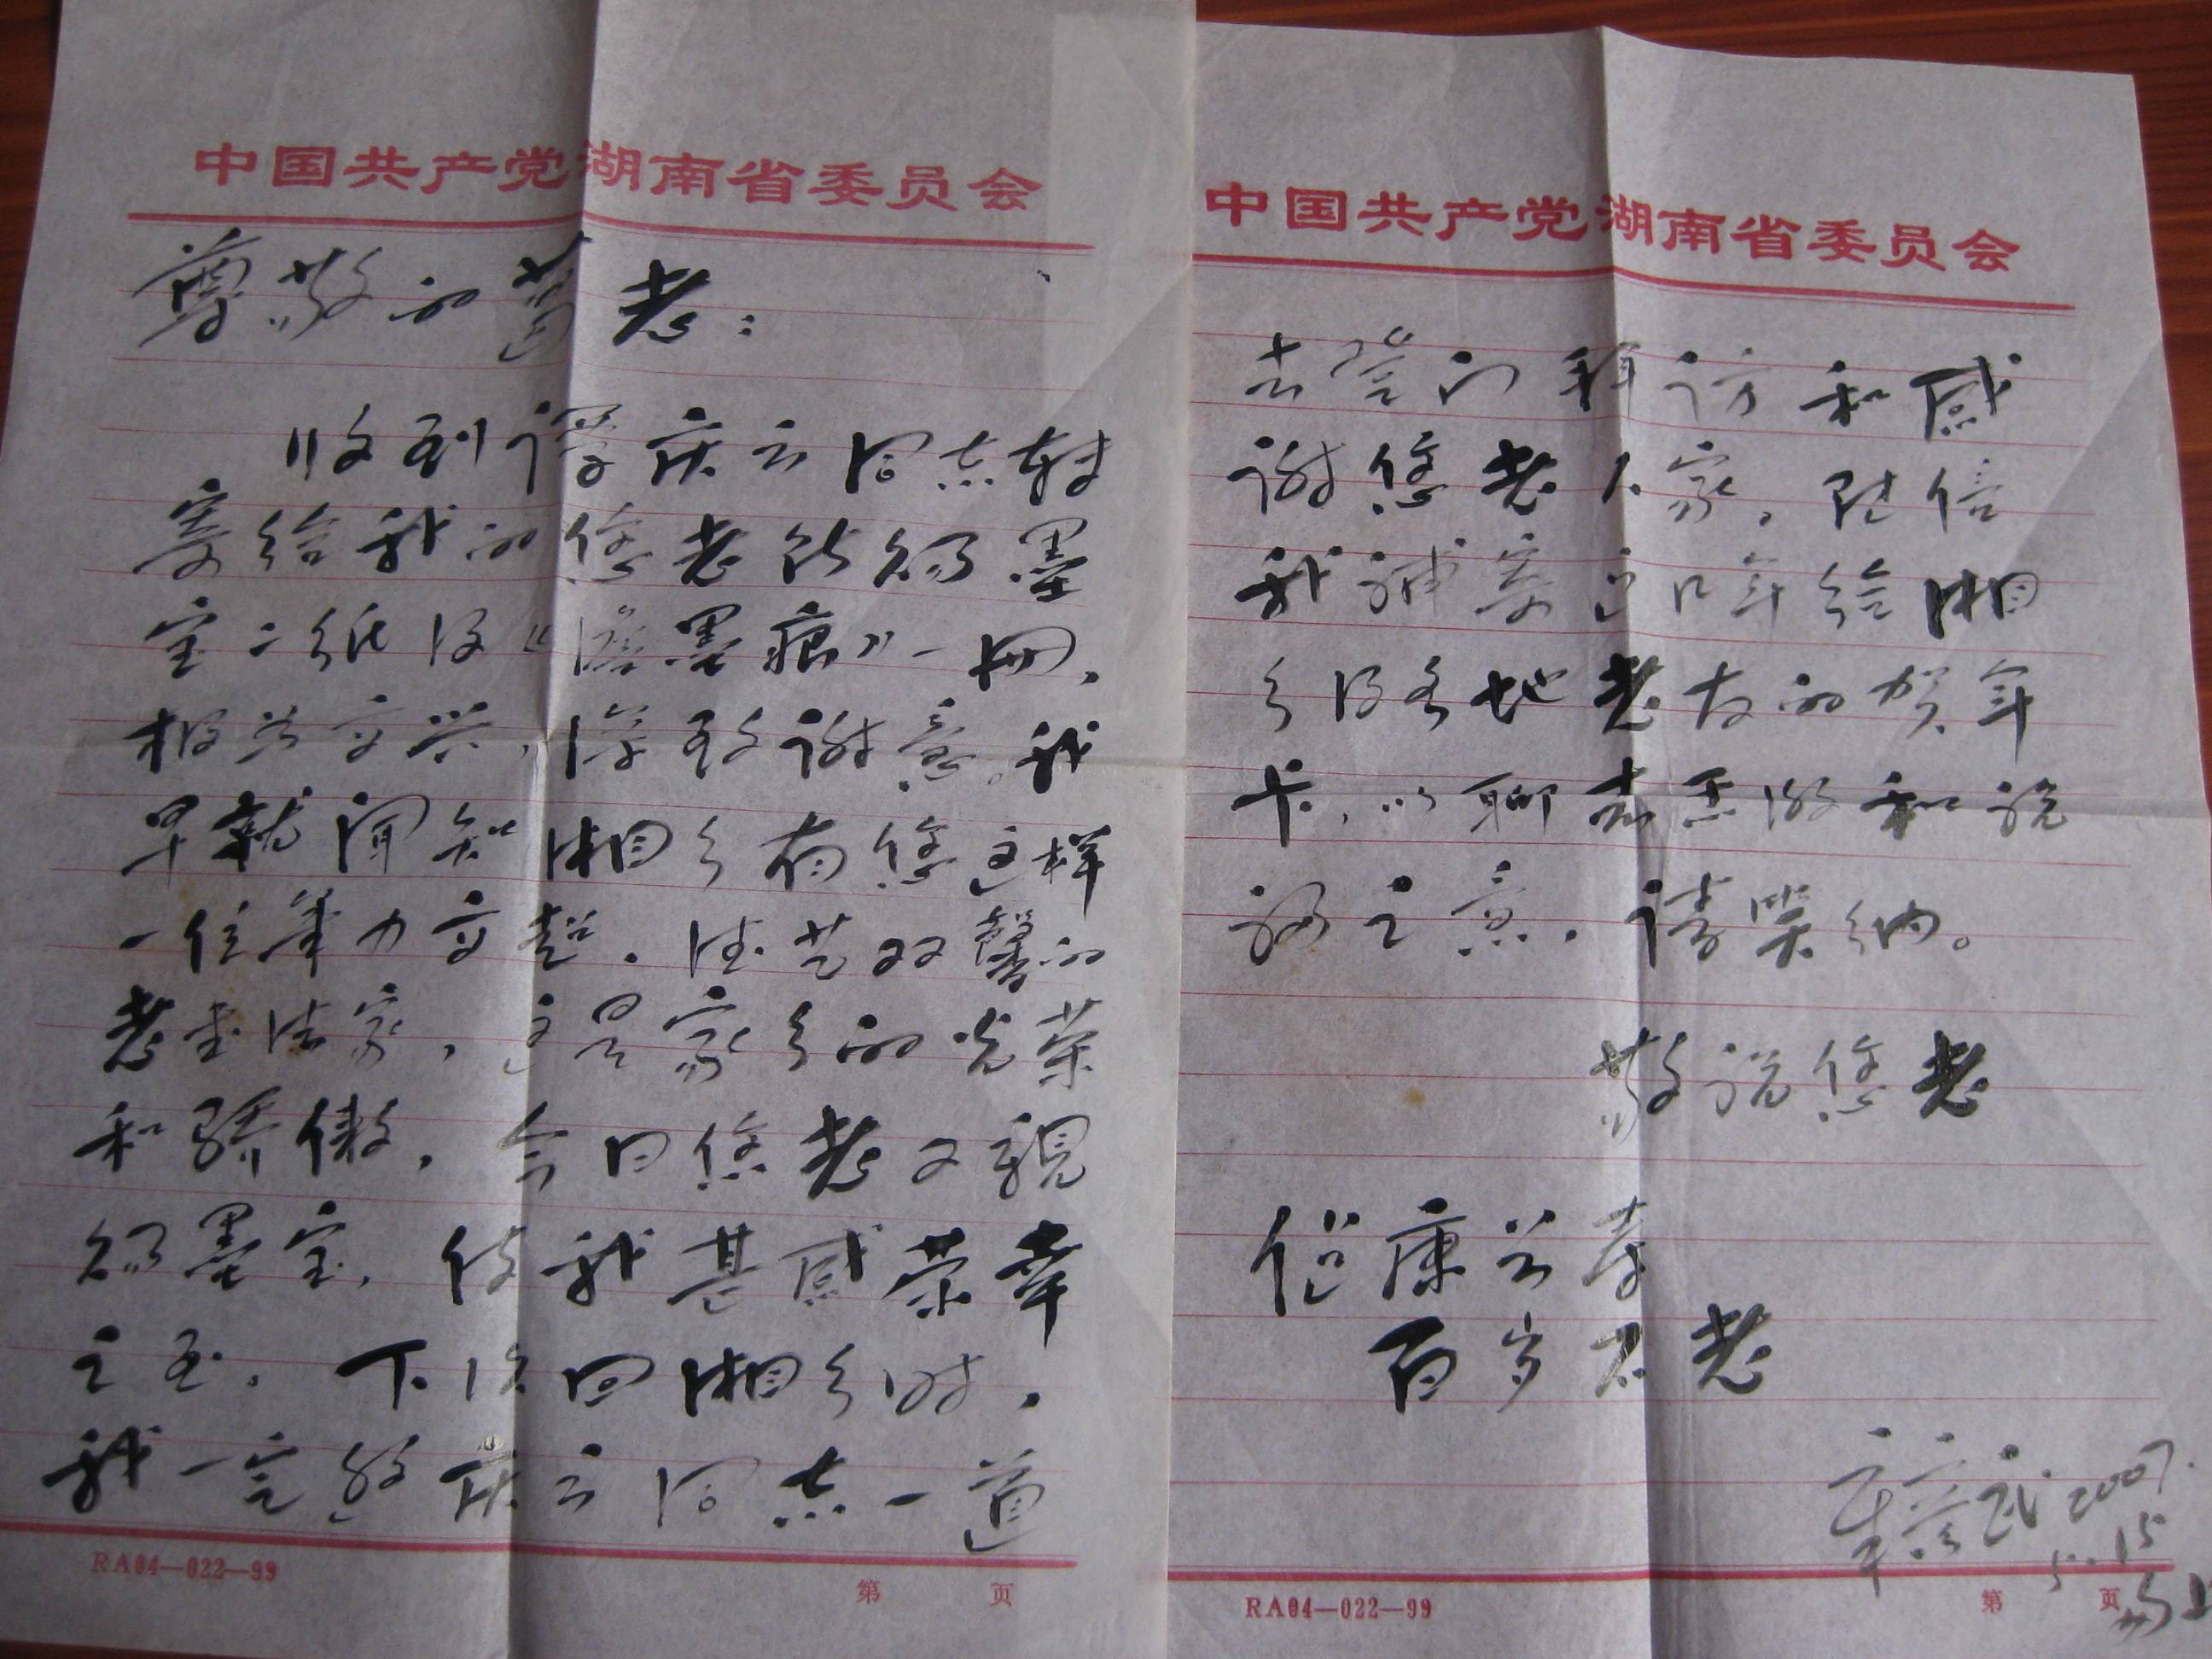 中国共产党湖南省委员会
尊敬的葛老：
收到谭庆云同志转
寄给我的您老所赐墨
宝二纸及《墨痕》一册，
极为高兴，深致谢意。我
早就闻知湘乡有您这样
一位笔力高超，德艺双馨的
老书法家，这是家乡的光荣
和骄傲，今日您老又亲
赐墨宝，使我甚感荣幸
之至。下次回湘乡时，
我一定邀庆云同志一道
RA04—022—99
第 页
中国共产党湖南省委员会
去登门拜访和感
谢您老人家，随信
我补寄近年给湘
乡及各地老友的贺年
卡，以聊表恭敬和祝
福之意，请笑纳。
敬祝您老
健康长寿
百岁不老
2007.
5.15
上
RA04—022—99
第 页